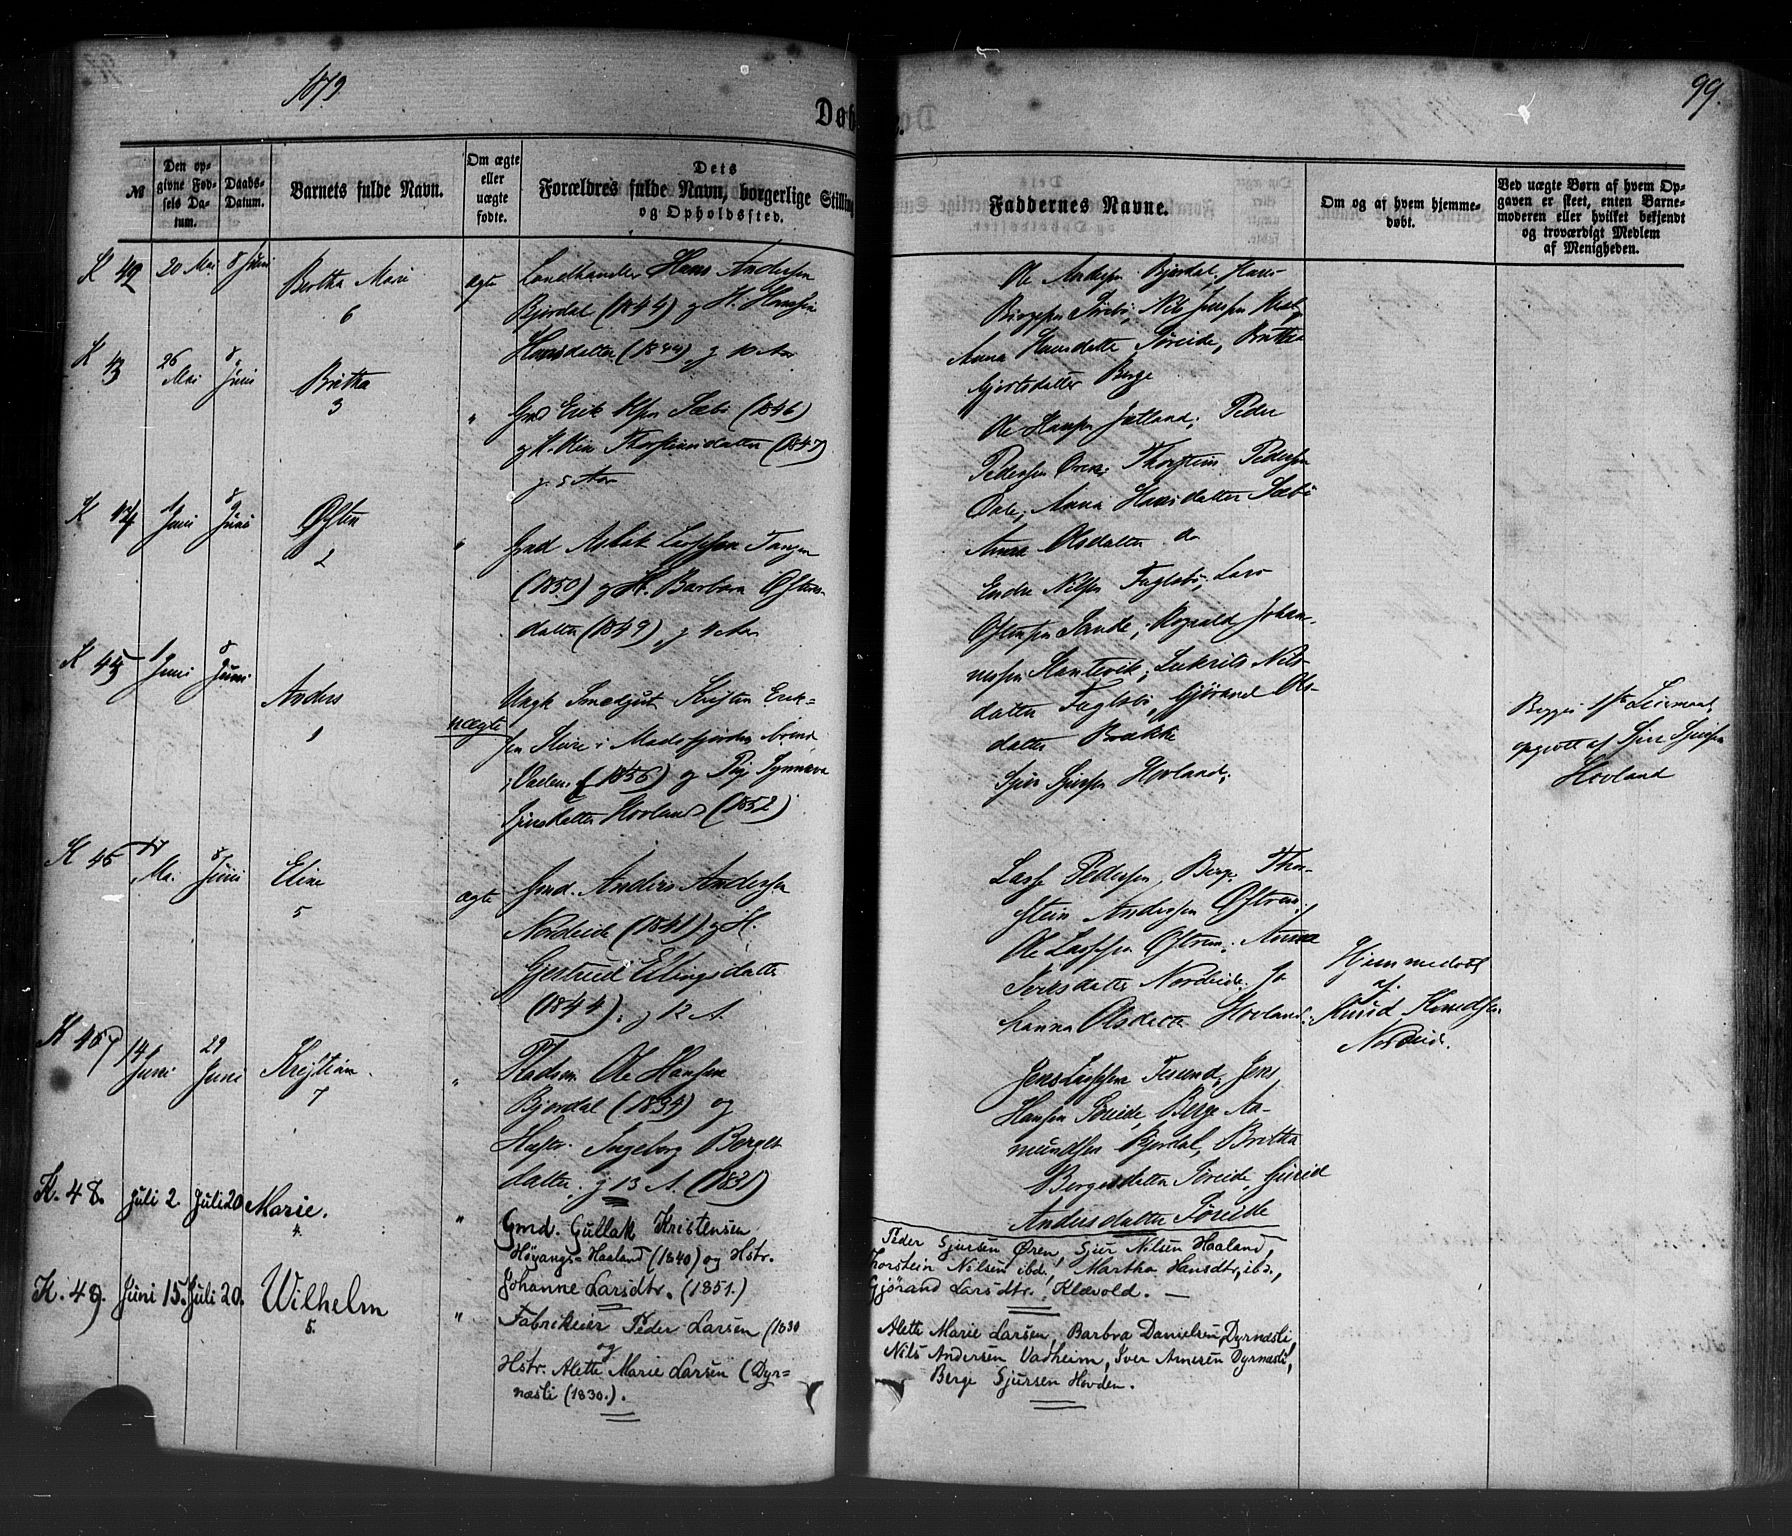 1879.
99.
Døb
№
Den opgivne Fødsels Datum.
Daabs-Datum.
Barnets fulde Navn.
Om ægte eller uægte fødte.
Dets Forældres fulde Navn, borgerlige Stilling og Opholdssted.
Faddernes Navne.
Om og af hvem hjemmedøbt.
Ved uægte Børn af hvem Opgaven er skeet, enten Barnemoderen eller hvilket bekjendt og troværdigt Medlem af Menigheden.
K 42
20 Mai
8 Juni
Bertha Marie
6
ægte
Landhandler Hans Andersen
Bjordal (1844) og H. Hansine
Hansdatter (1844) g 10 Aar
Ole Andersen Bjordal, Hans
Anna Hansdatter Søreide, Brittha
Gjertsdatter Berge
K 43
26 Mai
8 Juni
Britha
3
"
Gmd Erik Olsen Sæbø (1846)
og H. Thorsteinsdatter (1847)
g. 5 Aar
Ole Hansen; Peder
Pedersen Øren; Thorstein Pedersen
Dale; Anna Hansdatter Sæbø
Anna Olsdatter do
K 44
1 Juni
8 Juni
Østen
2
"
Gmd Aslak Lassesen Tangen
(1850) og H. Barbara Østens-
datter (1849) g 4 Aar
Endre Nilsen Fuglebø; Lars
Østensen Sande; Rognald Johan-
datter Fuglebø, Gjørand Ols-
datter Brække
K 45
1 Juni
8 Juni
Anders
1
uægte
Ungk Smedgut Kristen Erik-
sen Stire i Madsfjorden
(1856) og Pige Synneva
Sjursdatter Hovland (1852)
Sjur Sjursen Hovland;
Begges 1ste Leiermaal
opgivet af Sjur Sjursen
Hovland
K 46
17 Mai
8 Juni
Eline
5
ægte
Gmd. Anders Andersen
Nordeide (1841) og H.
Gjertrud Ellingsdatter
(1844); g 12 A.
Lasse Pedersen Berge, Thor-
stein Andersen Østrem;
Ole Lassesen Østrem; Anna
Iversdatter Nordeide; Jo-
hanna Olsdatter Hovland.
Hjemmedøbt
af
Knud Knudsen
Nordeide.
K 47
14 Juni
29 Juni
Kristian.
7
"
Pladsm. Ole Hansen
Bjordal (1834) og
Hustr. Ingeborg Berges
datter; g 13 A. (1831)
Jens Lassesen; Jens
Hansen Søreide, Berge Aa-
mundsen Bjordal, Britha
Bergesdatter Søreide, Guri
Andersdatter Søreide
K. 48.
Juli 2.
Juli 20
Marie.
4.
"
Gmd. Gullak Kristensen
Høyangs-Haaland (1840) og Hstr.
Johanne Larsdtr. (1851.)
Peder Sjursen Øren, Sjur Nilsen Haaland,
Thorstein Nilsen ibd., Martha Hansdtr., ibd.,
Gjørand Larsdtr. Klævold. —
K. 49.
Juni 15.
Juli 20.
Wilhelm
5.
"
Fabrikeier Peder Larsen (1830
og
Hstr. Alette Marie Larsen (Dyr-
næsli (1830.).
Alette Marie Larsen, Barbra Danielsen, Dyrnæsli,
Nils Andersen Vadheim, Iver Arnesen Dyrnæsli,
Berge Sjursen Hovden.